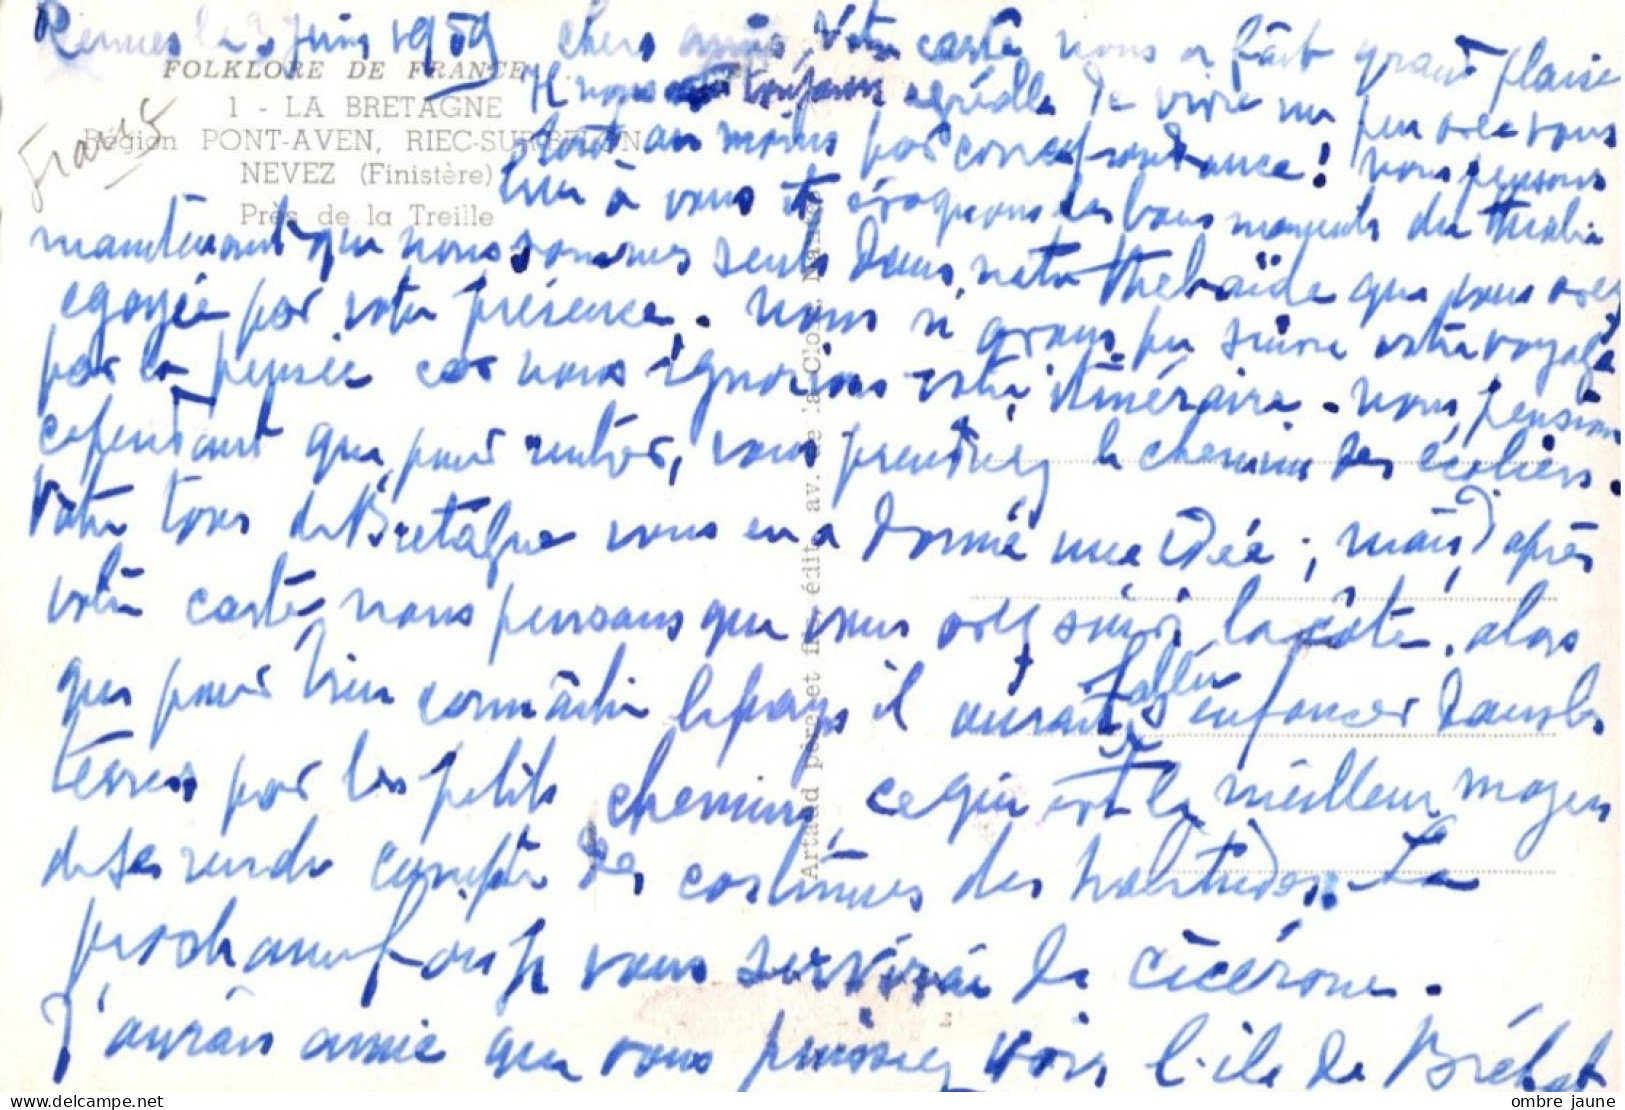 Rennes le 3 Juin 1959
FOLKLORE DE FRANCE
1 - LA BRETAGNE
Région PONT-AVEN, RIEC-SUR-BELON
NEVEZ (Finistère)
Près de la Treille
France
Chers amis, Votre carte nous a fait grand plaisir
Il nous est toujours agréable de vivre un peu avec vous
au moins par correspondance! nous pensons
à vous et évoquons les bons moments du
maintenant que nous sommes seuls dans notre thébaïde que vous avez
egayée par votre présence. nous n'avons pu suivre votre voyage
par la pensée car nous ignorions votre itinéraire. nous pensions
cependant que, pour rentrer, vous prendriez le chemin des écoliers.
Votre tour de Bretagne vous en a donné une idée; mais, d'après
votre carte, nous pensons que vous avez suivi la côte, alors
que pour bien connaître le pays il aurait fallu s'enfoncer dans les
terres par les petits chemins, ce qui est le meilleur moyen
de se rendre compte des costumes des habitudes. La
prochaine fois je vous servirai de cicérone.
J'aurais aimé que vous puissiez voir l'ile de Bréhat
Artaud père et fils, édit., av. de la Close, Nantes
ombre jaune